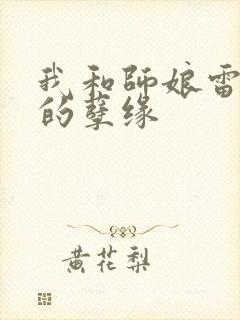 我和師娘雷
的孽缘
黄花梨